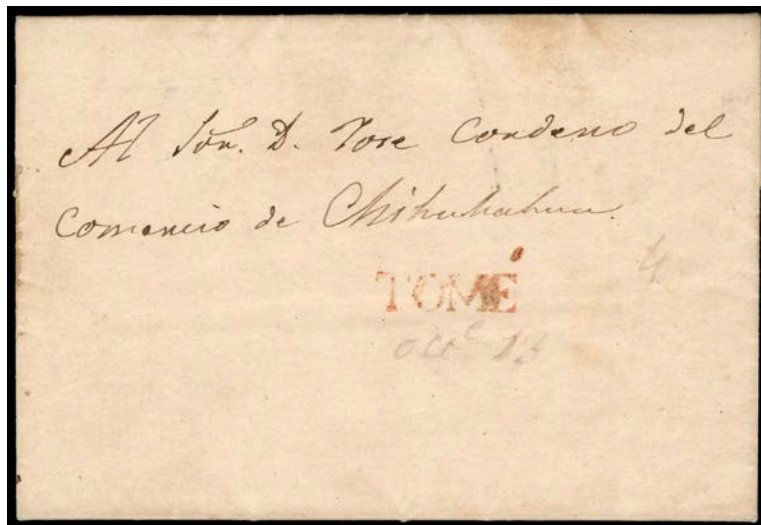 Al Sôr. D. Jose Cordero del
Comercio de Chihuhahua.
TOMÉ
4
octe 13